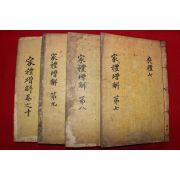 喪禮七
家禮增解 第七
家禮增解 第八
家禮增解 第九
家禮增解卷之十